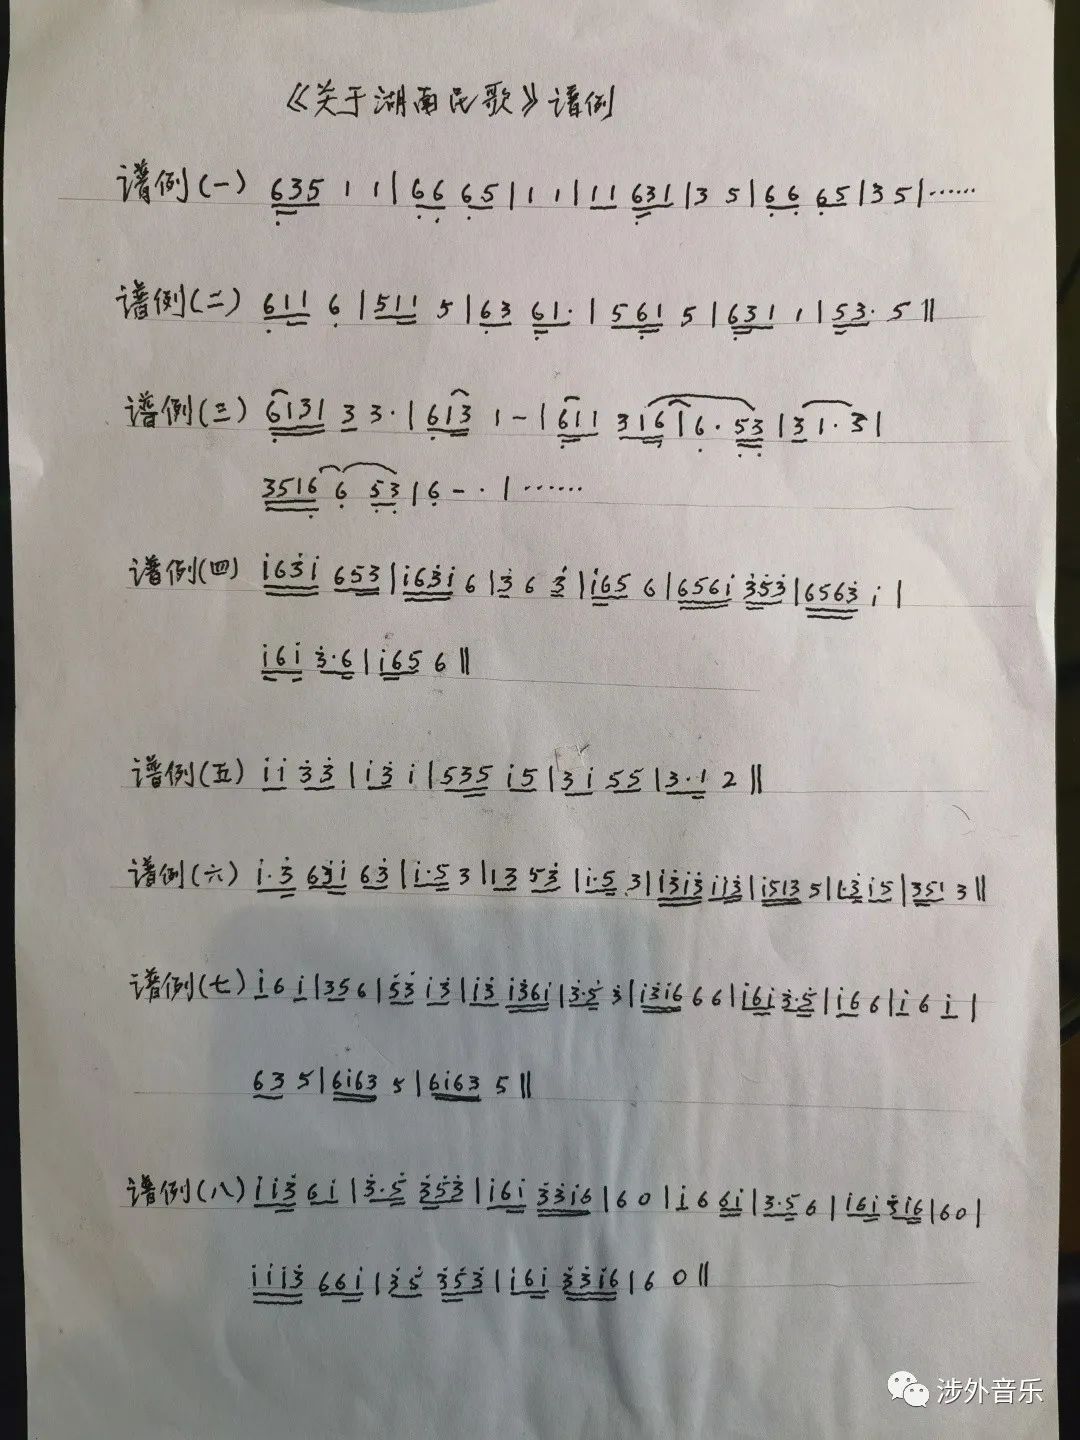 《关于湖南民歌》谱例
谱例(一) 635 1 1 | 66 65 | 1 1 | 11 631 | 3 5 | 66 65 | 3 5 | ……
谱例(二) 611 6 | 511 5 | 63 61· | 561 5 | 631 1 | 53· 5 ‖
谱例(三) 6131 3 3· | 613 1 - | 611 316 | 6· 53 | 3 1· 3 |
3516 6 53 | 6 - · | ……
谱例(四) i63i 653 | i63i 6 | 3 6 3 | i65 6 | 656i 353 | 6563 i |
i6i 3·6 | i65 6 ‖
谱例(五) ii 33 | i3 i | 535 i5 | 3i 55 | 3·1 2 ‖
谱例(六) i·3 63i 63 | i·5 3 | 13 53 | i·5 3 | i3i3 ii3 | i513 5 | i·3 i5 | 351 3 ‖
谱例(七) i 6 i | 356 | 53 i3 | i3 i36i | 3·5 3 | i3i6 66 | i6i 3·5 | i6 6 | i 6 i |
63 5 | 6i63 5 | 6i63 5 ‖
谱例(八) ii3 6i | 3·5 353 | i6i 33i6 | 6 0 | i 6 6i | 3·5 6 | i6i 3i6 | 6 0 |
iii3 66i | 35 353 | i6i 33i6 | 6 0 ‖
涉外音乐